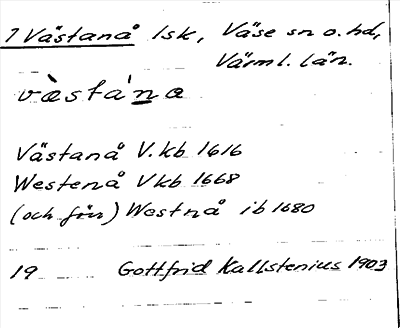 1 Västanå lsk, Väse sn o. hd,
Värml. län.
vàsta'na
Västanå V.kb 1616
Westenå Vkb 1668
(och frin) Westnå ib 1680
19 Gottfrid Kallstenius 1903